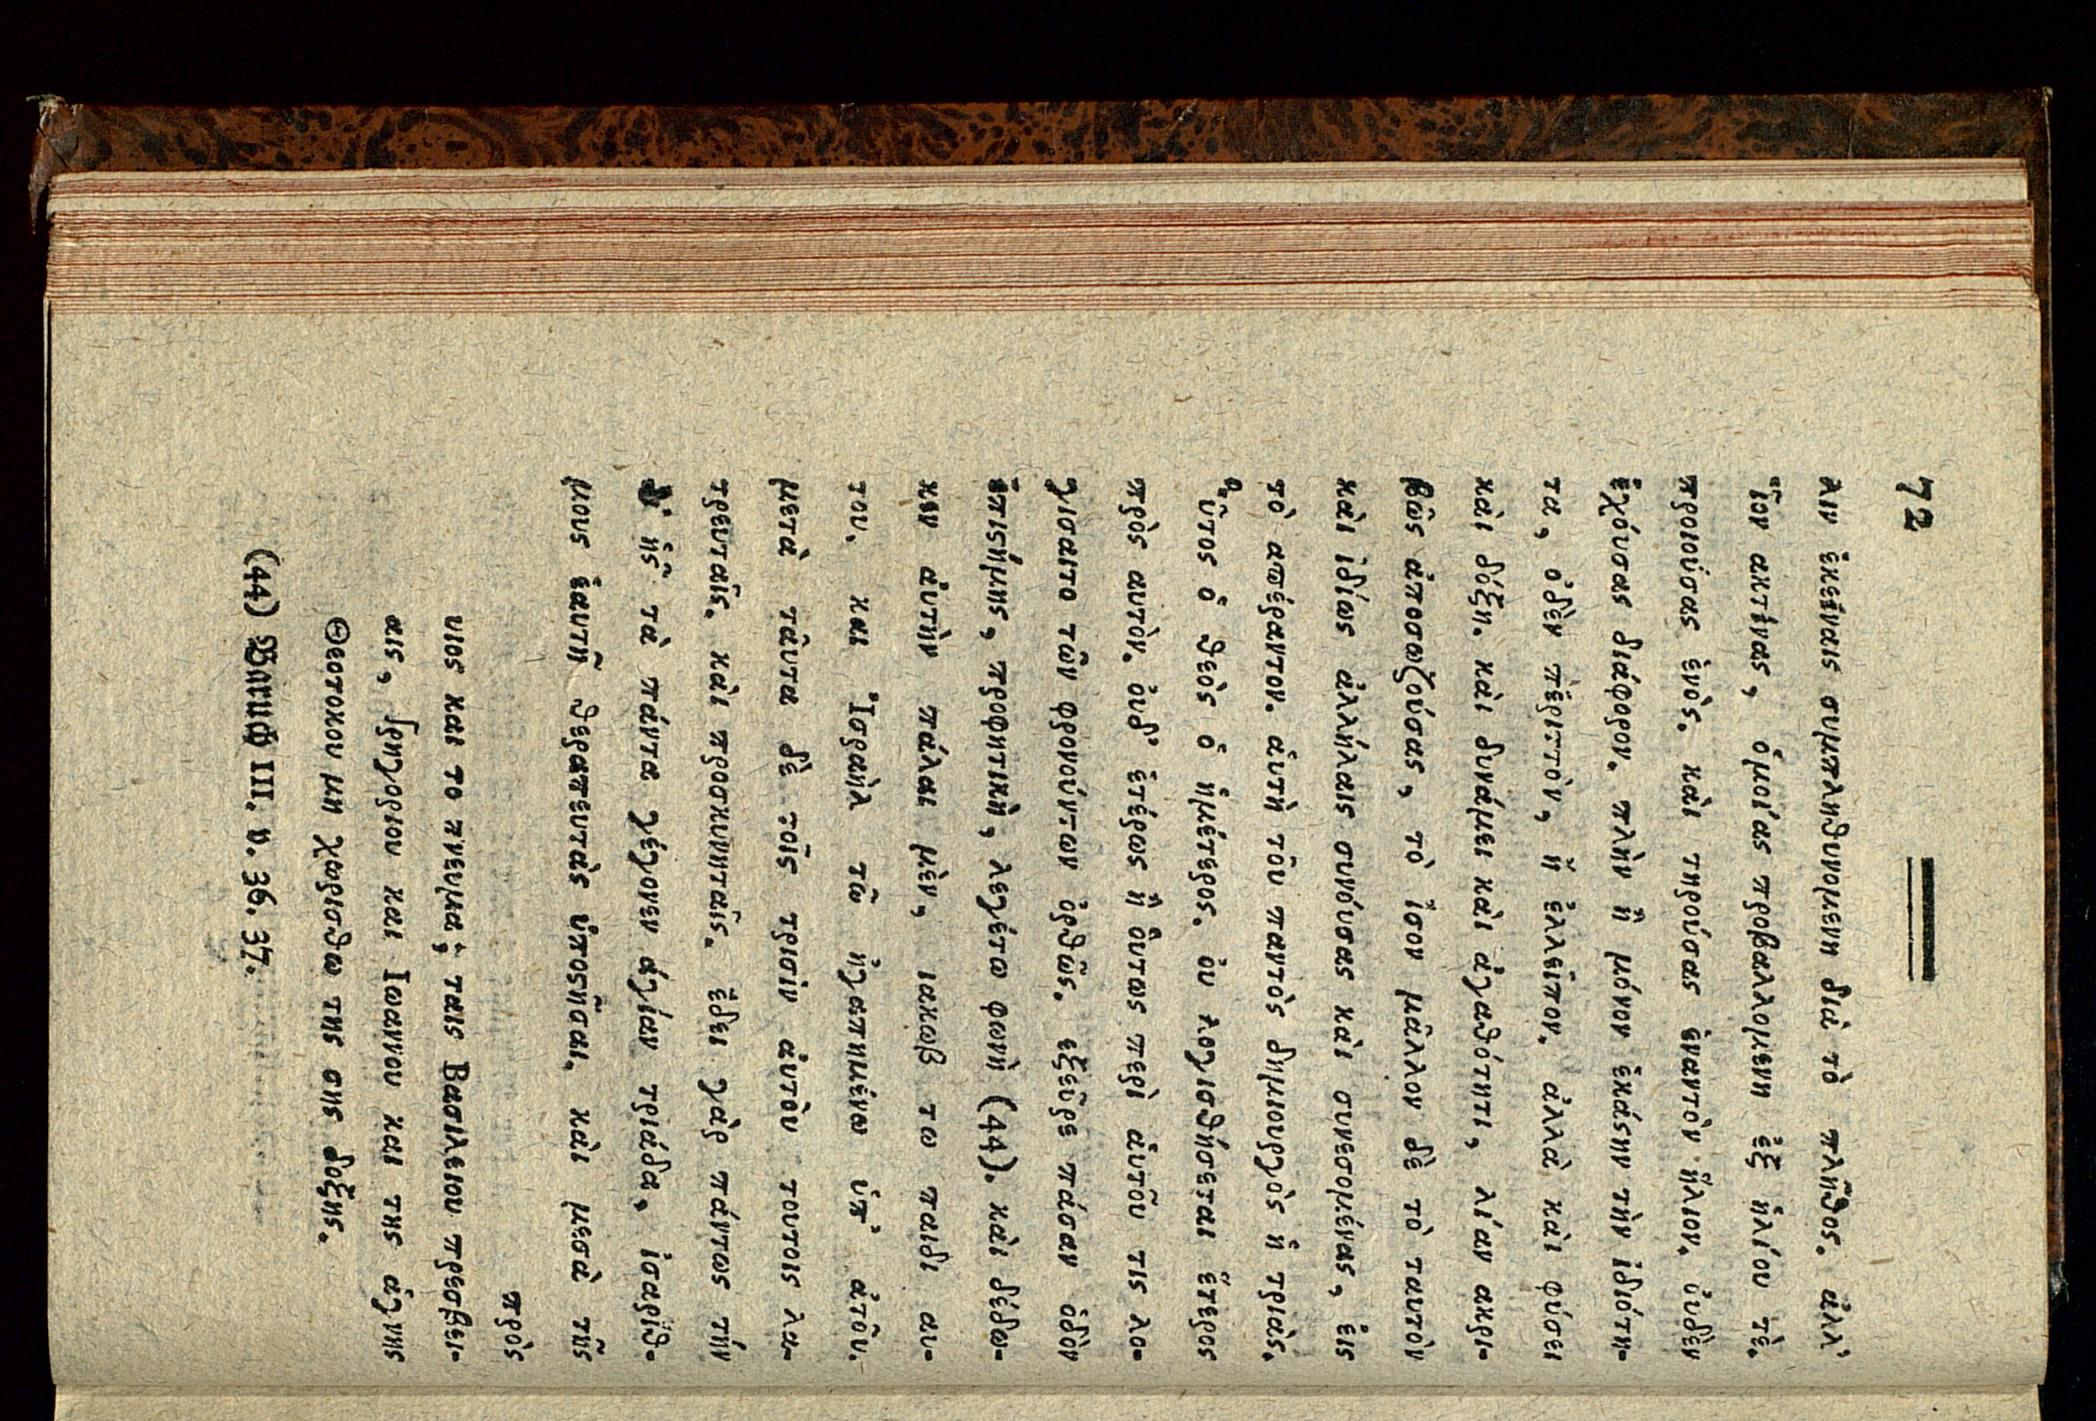 72
λιν ἐκείναις συμπληθυνομένη διὰ τὸ πλῆθος. ἀλλ'
ἷον ακτίνας, ὁμοίας προβαλλομένη ἐξ ἡλίου τὲ.
προιούσας ἑνὸς. κὰι τηρούσας ἑναντὸν ἥλιον. ὀυδὲν
ἐχόυσας διάφορον. πλὴν ἢ μόνον ἑκάϛην τὴν ἰδιότη-
τα, ὀδὲν πἐριττὸν, ἢ ἐλλεῖπον. ἀλλὰ κὰι φύσει
κὰι δόξῃ. κὰι δυνάμει κὰι ἀγαθότητι, λίαν ακρι-
βῶς ἀποσωζούσας, τὸ ἴσον μᾶλλον δὲ τὸ ταυτὸν
κὰι ἰδίως ἀλλήλαις συνόυσας κὰι συνεσομένας, ἐις
τὸ απέραντον. ἀυτὴ τοῦ παντὸς δημιουργὸς ἡ τριὰς.
οὗτος ὁ θεὸς ὁ ἡμέτερος. ὀυ λογισθήσεται ἕτερος
πρὸς αυτὸν. ὀυδ' ἑτέρως ἢ ὅυτως περὶ ἀυτοῦ τις λο-
γισαιτο τῶν φρονούντων ὀρθῶς. εξεῦρε πάσαν ὁδὸν
ἐπιϛήμης, προφητικὴ, λεγέτω φωνὴ (44). κὰι δέδω-
κεν ἀυτὴν πάλαι μὲν, ιακωβ τω παιδι αυ-
του. και Ἰσραὴλ τῶ ἠγαπημένω ὑπ' ἀτοῦ.
μετὰ τᾶυτα δὲ τοῖς τρισὶν ἀυτὸυ τουτοις λα-
τρευταῖς. κὰι προσκυνηταῖς. ἔδει γὰρ πάντως τὴν
δἰ ἧς τὰ πάντα γέγονεν ἁγίαν τριάδα, ἰσαριθ-
μους ἑαυτῆ θεραπευτὰς ὑποϛῆσαι. κὰι μεσὰ τῆς
πρὸς
υιος και το πνευμα; ταις Βασιλειου πρεσβει-
αις, Γρηγοριου και Ιωαννου και της ἁγνης
Θεοτοκου μη χωρισθω της σης δοξης.
(44) Baruch III. v. 36. 37.